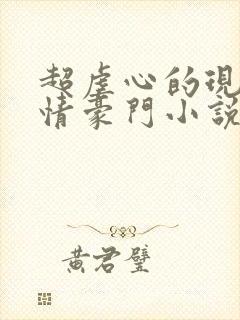 超虐心的現
情豪門小說
黃君璧